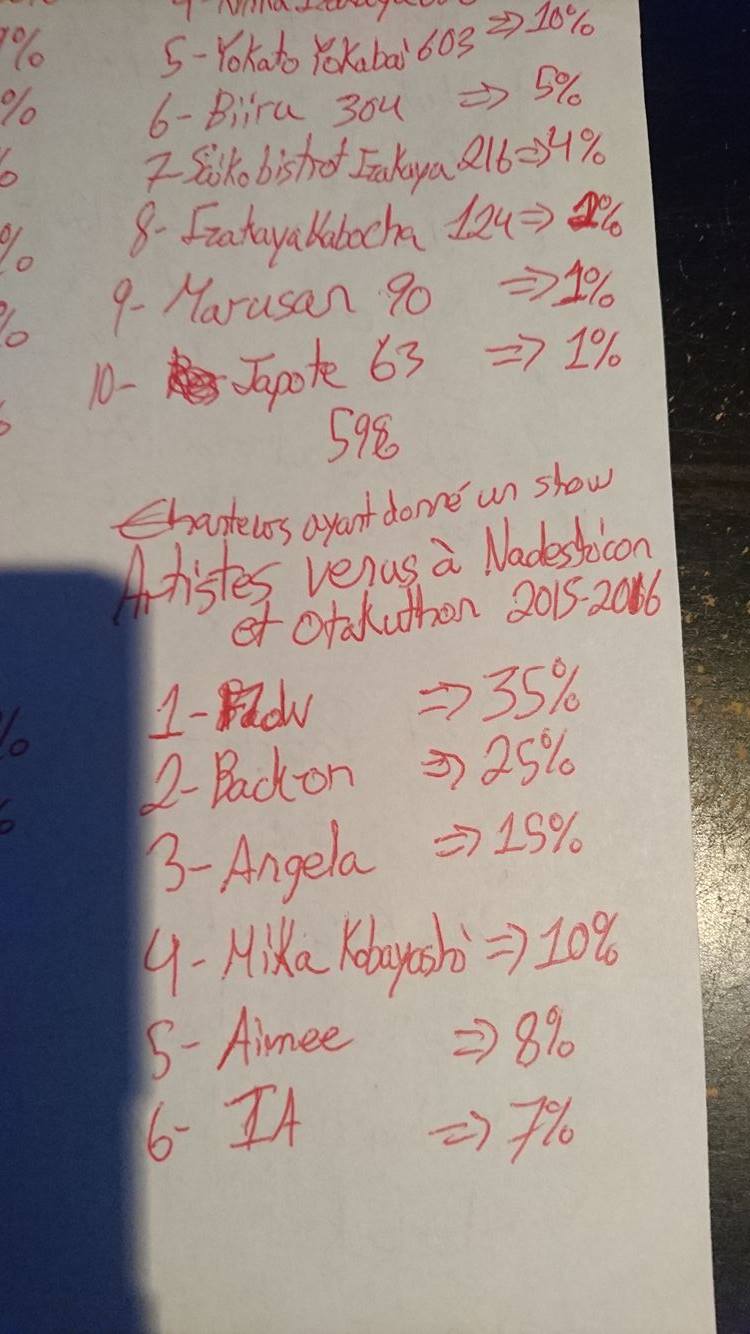 5- Yokato Yokabai 603 => 10%
6- Biiru 304 => 5%
7- Seiko bistrot Izakaya 216 => 4%
8- Izakaya Kabocha 124 => 2%
9- Marusan 90 => 1%
10- Japote 63 => 1%
Chanteurs ayant donné un show
Artistes venus à Nadeshicon
et Otakuthon 2015-2016
1- Flow => 35%
2- Back-on => 25%
3- Angela => 15%
4- Mika Kobayashi => 10%
5- Aimee => 8%
6- IA => 7%